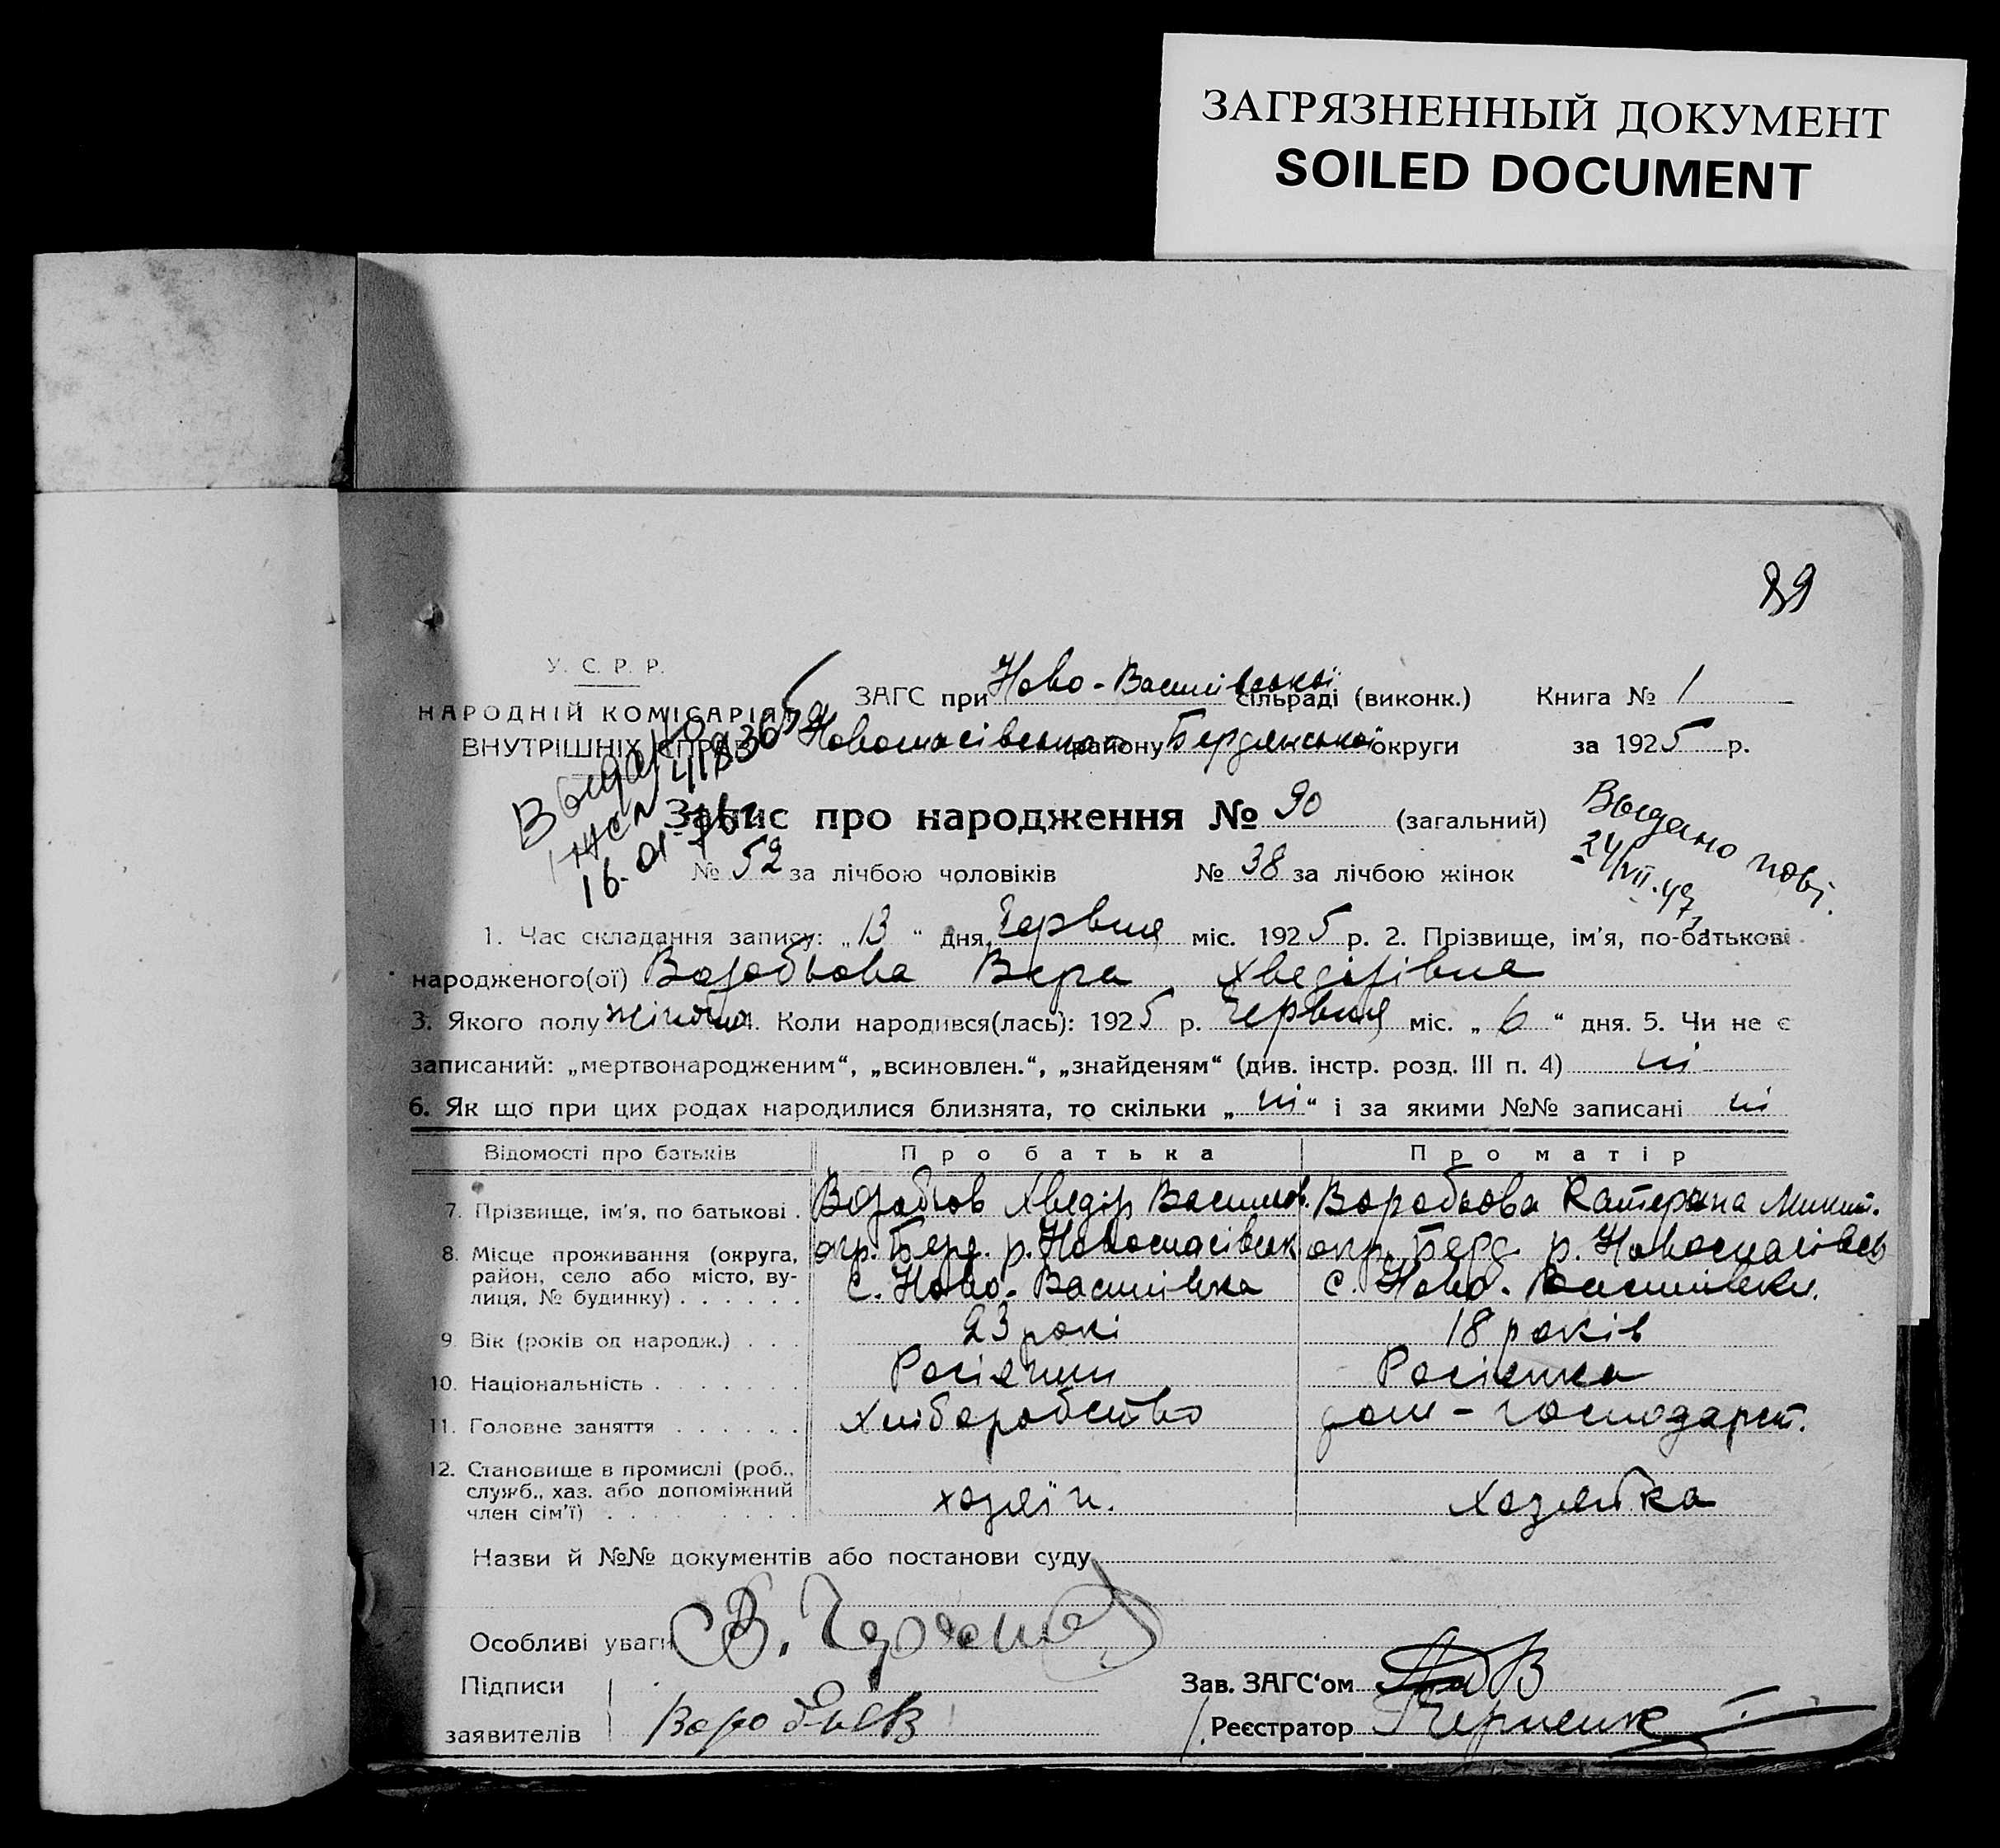 ЗАГРЯЗНЕННЫЙ ДОКУМЕНТ
SOILED DOCUMENT
89
У. С. Р. Р.
НАРОДНІЙ КОМІСАРІЯТ
ВНУТРІШНІХ СПРАВ
ЗАГС при Ново-Василівської сільраді (виконк.) Книга № 1
Новоспасівського району Бердянської округи за 1925 р.
Запис про народження № 90 (загальний)
№ 52 за лічбою чоловіків № 38 за лічбою жінок
16-01-
Выдано пові.
24/VII.47
1. Час складання запису: „13“ дня Червня міс. 1925 р. 2. Прізвище, ім'я, по-батькові
народженого(ої) Воробьова Вера Хведорівна
3. Якого полу жіночого 4. Коли народився(лась): 1925 р. Червня міс. „6“ дня. 5. Чи не є
записаний: „мертвонародженим“, „всиновлен.“, „знайденям“ (див. інстр. розд. III п. 4) ні
6. Як що при цих родах народилися близнята, то скільки „ні“ і за якими №№ записані ні
Відомості про батьків Про батька Про матір
7. Прізвище, ім'я, по батькові . Воробьов Хведір Василов. Воробьова Катерина Микит.
8. Місце проживання (округа, окр. Берд. р. Новоспасівськ окр. Берд. р. Новоспасівськ
район, село або місто, ву- с. Ново-Василівка с. Ново-Василівки.
лиця, № будинку) . . . . . .
9. Вік (років од народж.) . . . 23 рокі 18 років
10. Національність . . . . . . . Росіянин Росіянка
11. Головне заняття . . . . . . Хліборобство дом-господарст.
12. Становище в промислі (роб.,
служб., хаз. або допоміжний хозяїн. Хозяйка
член сім'ї) . . . . . . . . .
Назви й №№ документів або постанови суду
Особливі уваги
Підписи Зав. ЗАГС'ом
заявителів Воробьев Реєстратор